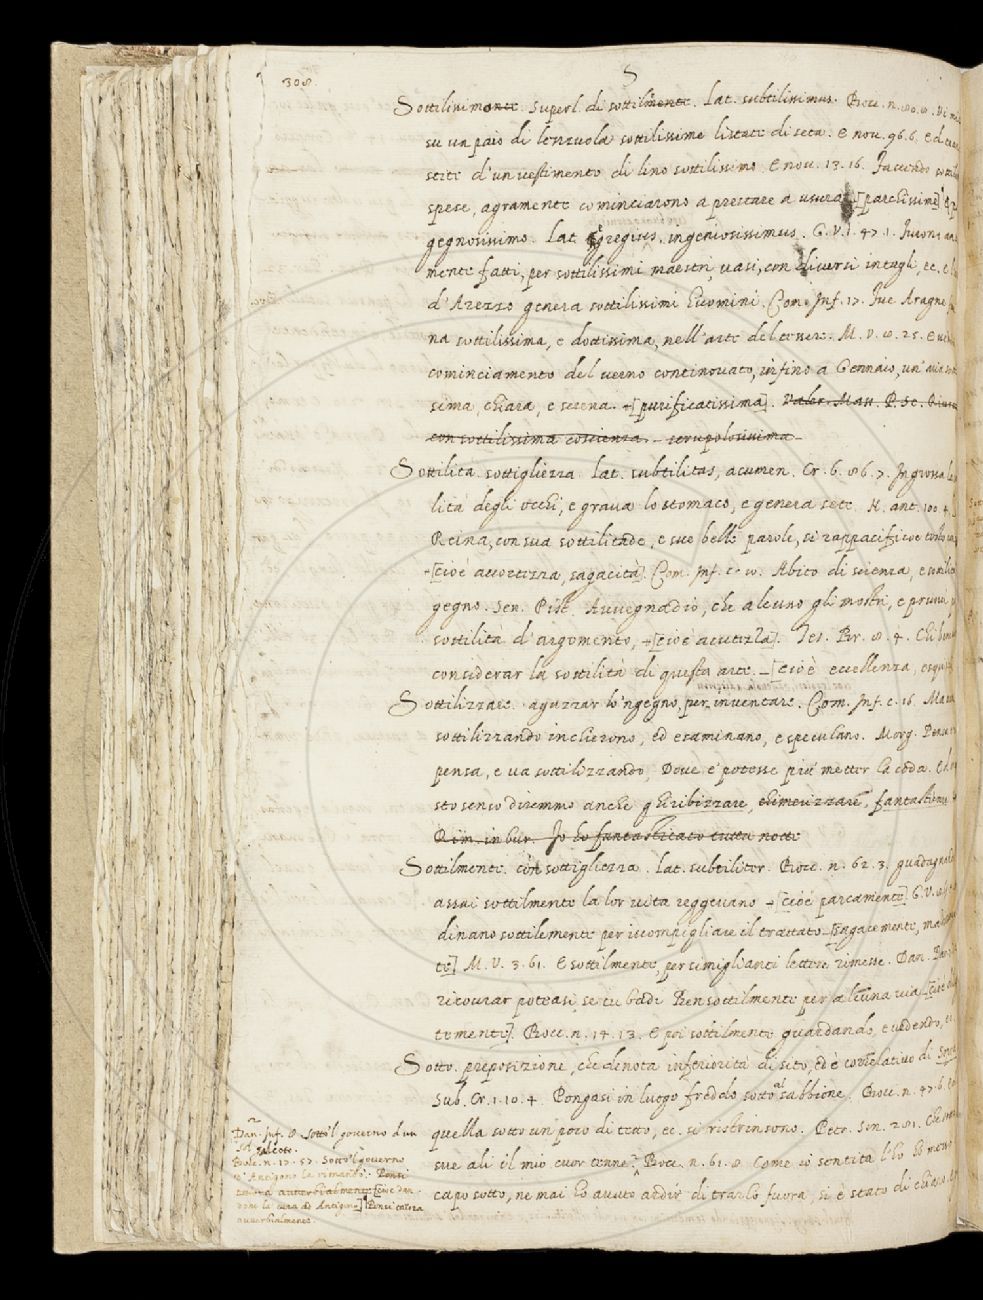 308.
S
Sottilissimamente. Superl. di sottilmente. Lat. subtilissimus. Bocc. n. 80. 8.
su un paio di lenzuola sottilissime listate di seta. E nov. 96. 6.
stite d'un vestimento di lino sottilissimo. E nov. 13. 16. Facendo
spese, agramente cominciarono a prestare a usura [parchissime]
gegnosissimo. Lat. egregius. ingeniosissimus. G. V. 1. 47. 1. Furono
mente fatti, per sottilissimi maestri, vasi, con diversi intagli, ec.
d'Arezzo genera sottilissimi huomini. Com. Inf. 17. Fue Aragne
na sottilissima, e dottissima, nell'arte del tessere. M. V. 8. 25.
cominciamento del verno continovato, infino a Gennaio, un'aria
sima, chiara, e serena. [purificatissima]. Valer. Mass. P. Sc.
con sottilissima coscienza. scrupolosissima
Sottilità. sottigliezza. Lat. subtilitas, acumen. Cr. 6. 86. 7. Ingrossa
lità degli occhi, e grava lo stomaco, e genera sete. N. ant. 100. 4.
Reina, con sua sottilitade, e sue belle parole, si rappacificoe
[cioè accortezza, sagacità]. Com. Inf. c. 10. Abito di scienza, e
gegno. Sen. Pist. Avvegnadiò, che alcuno gli mostri, e pruovi
sottilità d'argomento, [cioè acutezza]. Tes. Br. 8. 4. Chi
considerar la sottilità di questa arte. [cioè eccellenza,
Sottilizzare. aguzzar lo 'ngegno, per inventare. Com. Inf. c. 16.
sottilizzando inchierono, ed esaminano, e speculano. Morg.
pensa, e va sottilizzando, Dove e' potesse più metter la coda.
sto senso diremmo anche ghiribizzare, chimerizzare, fantasticare
Rim. in bur. Io ho fantasticato tutta notte
Sottilmente. con sottigliezza. Lat. subtiliter. Bocc. n. 62. 3. guadagnando
assai sottilmente la lor vita reggevano [cioè parcamente] G. V.
dinano sottilemente per iscompigliare il trattato [sagacemente,
te] M. V. 3. 61. E sottilmente, per simiglianti lettere rimesse. Dan.
ricovrar poteasi, se tu badi Ben sottilmente per alcuna via [cioè
temente]. Bocc. n. 14. 13. E poi sottilmente guardando, e vedendo,
Sotto. preposizione, che dinota inferiorità di sito, ed è correlativo di
Sub. Cr. 1. 10. 4. Pongasi in luogo freddo sotto al sabbione. Bocc. n. 47. 6.
quella sotto un poco di tetto, ec. si ristrinsono. Petr. Son. 281.
sue ali il mio cuor tenne. Bocc. n. 61. 8. Come io sentita l'ho
capo sotto, ne mai ho avuto ardir di trarlo fuora, si è stato
Dan. Inf. 8. Sotto 'l governo d'un
Bocc. n. 17. 57. Sotto 'l governo
d'Antigono la rimandò.
done la cura ad Antigono]
avverbialmente